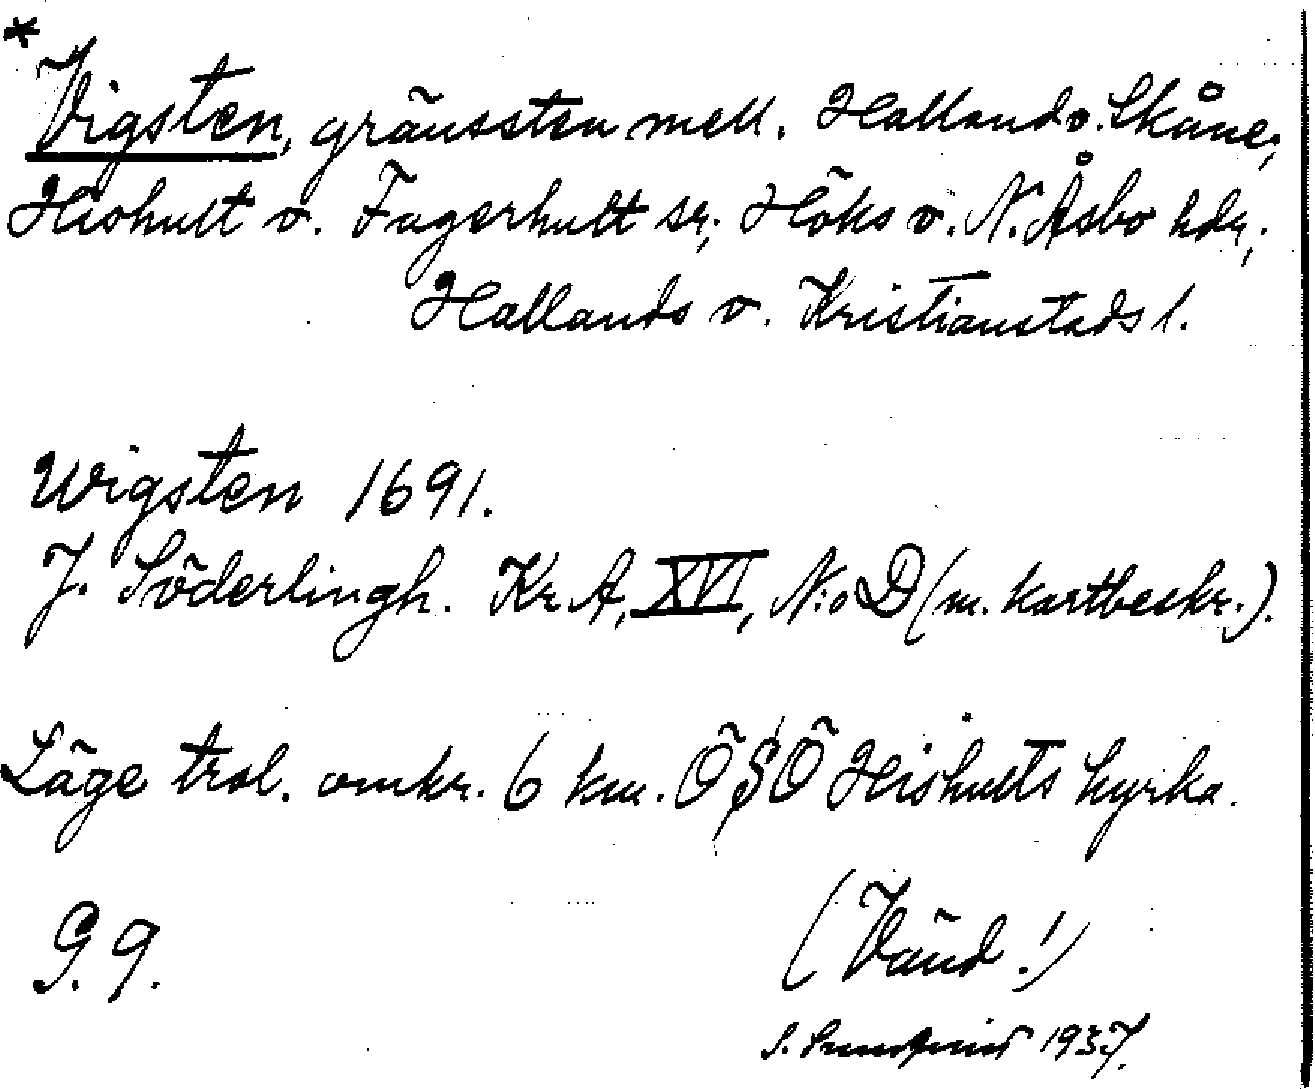 * Vigsten, gränssten mell. Halland o. Skåne;
Hishult o. Fagerhult sr; Höks o. N. Åsbo hdr;
Hallands o. Kristianstads l.
Wigsten 1691.
J. Söderlingh. Kr. A, XVI, N:o D (m. kartbeskr.).
Läge trol. omkr. 6 km. ÖSÖ Hishults kyrka.
G. 9.
(Vänd!)
S. 1937.